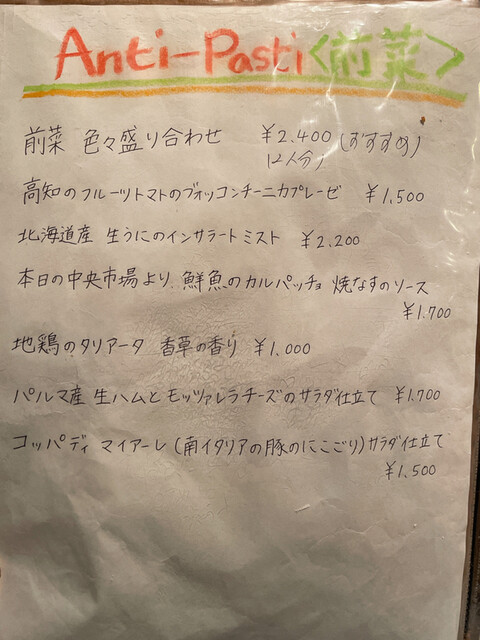 Anti-Pasti <前菜>
前菜 色々盛り合わせ ¥2.400 (おすすめ)
(2人分)
高知のフルーツトマトのブォッコンチーニカプレーゼ ¥1,500
北海道産 生うにのインサラートミスト ¥2.200
本日の中央市場より 鮮魚のカルパッチョ 焼なすのソース
¥1.700
地鶏のタリアータ 香草の香り ¥1.000
パルマ産 生ハムとモッツァレラチーズのサラダ仕立て ¥1.700
コッパディ マイアーレ (南イタリアの豚のにこごり)サラダ仕立て
¥1.500